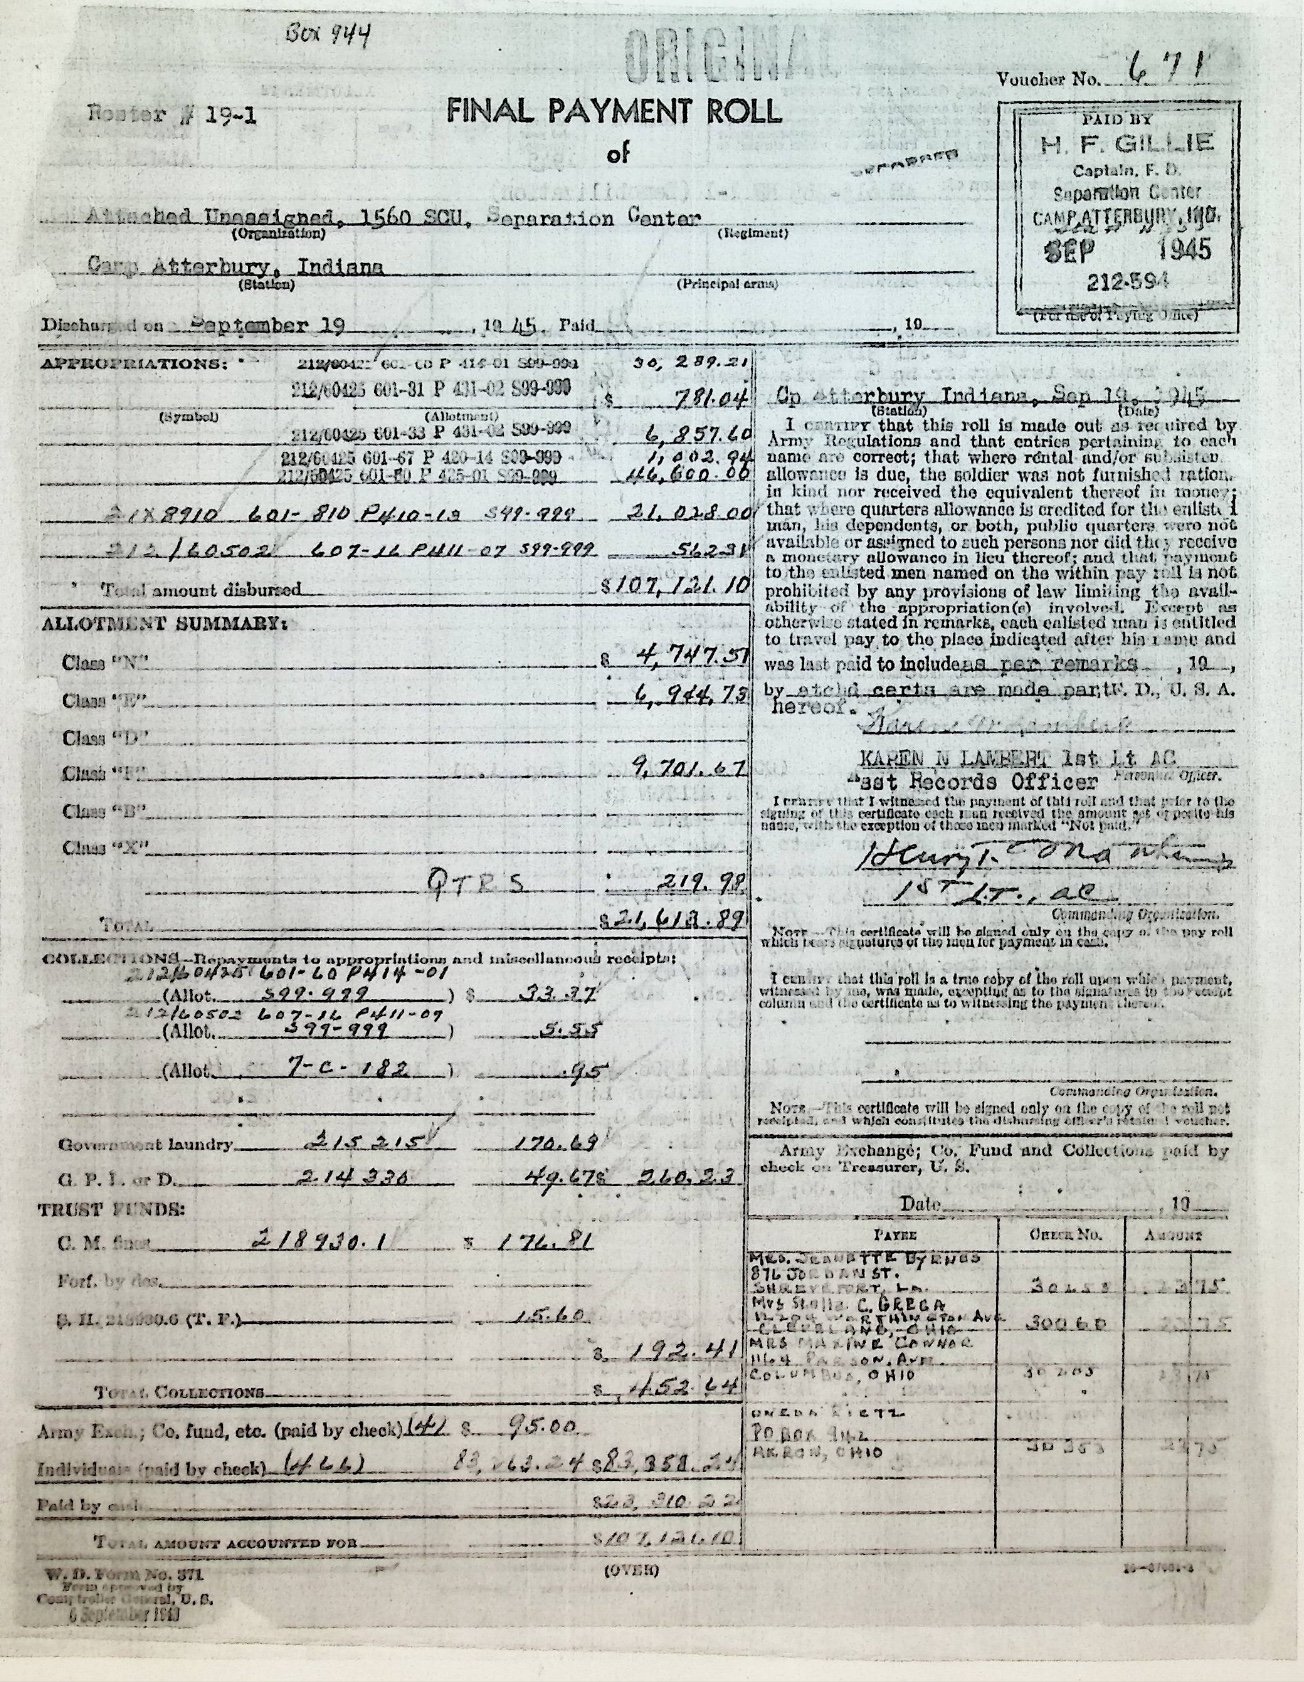 Box 944
ORIGINAL
Voucher No. 671
Roster # 19-1
FINAL PAYMENT ROLL
of
PAID BY
H. F. GILLIE
Captain, F. D.
Separation Center
CAMP ATTERBURY, IND.
SEP 1945
212-594
(For use of Paying Office)
Attached Unassigned, 1560 SCU, Separation Center
(Organization) (Regiment)
Camp Atterbury, Indiana
(Station) (Principal arms)
Discharged on September 19, 1945. Paid , 19
APPROPRIATIONS: 212/60425 601-60 P 414-01 S99-999 30,289.21
212/60425 601-31 P 431-02 S99-999 $ 781.04
(Symbol) (Allotment)
212/60425 601-33 P 431-02 S99-999 6,857.60
212/60425 601-67 P 420-14 S99-999 1,002.94
212/60425 601-80 P 425-01 S99-999 46,600.00
21X8910 601-810 P410-13 S99-999 21,028.00
212/60502 607-16 P411-07 S99-999 562.31
Total amount disbursed $107,121.10
ALLOTMENT SUMMARY:
Class "N" $ 4,747.51
Class "E" 6,944.73
Class "D"
Class "F" 9,701.67
Class "B"
Class "X"
QTRS 219.98
TOTAL $21,613.89
COLLECTIONS—Repayments to appropriations and miscellaneous receipts:
212/60425 601-60 P414-01
(Allot. S99-999 ) $ 33.37
212/60502 607-16 P411-07
(Allot. S99-999 ) 5.55
(Allot. 7-C-182 ) .95
Government laundry 215215 170.69
G. P. L. or D. 214330 49.67 $ 260.23
TRUST FUNDS:
C. M. fines 218930.1 $ 176.81
Forf. by des.
S. H. 218930.6 (T. F.) 15.60
$ 192.41
TOTAL COLLECTIONS $ 452.64
Army Exch.; Co. fund, etc. (paid by check) (4) $ 95.00
Individuals (paid by check) (466) 83,263.24 $83,358.24
Paid by cash $23,310.22
TOTAL AMOUNT ACCOUNTED FOR $107,121.10
W. D. Form No. 371
Form approved by
Comptroller General, U. S.
6 September 1943
(OVER)
Cp Atterbury Indiana, Sep 19, 1945
(Station) (Date)
I CERTIFY that this roll is made out as required by
Army Regulations and that entries pertaining to each
name are correct; that where rental and/or subsisten.
allowance is due, the soldier was not furnished ration.
in kind nor received the equivalent thereof in money;
that where quarters allowance is credited for the enlisted
man, his dependents, or both, public quarters were not
available or assigned to such persons nor did they receive
a monetary allowance in lieu thereof; and that payment
to the enlisted men named on the within pay roll is not
prohibited by any provisions of law limiting the avail-
ability of the appropriation(s) involved. Except as
otherwise stated in remarks, each enlisted man is entitled
to travel pay to the place indicated after his name and
was last paid to include as per remarks , 19 ,
by atchd certs are made part F. D., U. S. A.
hereof.
Karen N Lambert
KAREN N LAMBERT 1st Lt AC
Asst Records Officer Personnel Officer.
I CERTIFY that I witnessed the payment of this roll and that prior to the
signing of this certificate each man received the amount set opposite his
name, with the exception of those men marked "Not paid."
Henry T.
1ST LT., AC
Commanding Organization.
NOTE.—This certificate will be signed only on the copy of the pay roll
which bears signatures of the men for payment in cash.
I CERTIFY that this roll is a true copy of the roll upon which payment,
witnessed by me, was made, excepting as to the signatures in the receipt
column and the certificate as to witnessing the payment thereof.
Commanding Organization.
NOTE.—This certificate will be signed only on the copy of the roll not
receipted, and which constitutes the disbursing officer's retained voucher.
Army Exchange; Co. Fund and Collections paid by
check on Treasurer, U. S.
Date , 19
PAYEE CHECK NO. AMOUNT
MRS. JEANETTE BYRNES
876 JORDAN ST.
SHREVEPORT, LA.
Mrs Stella C. GREGA
WORTHINGTON AVE
CLEVELAND, OHIO 30060
MRS MAXINE CONNOR
1164 PARSON. AVE.
COLUMBUS, OHIO
ONEDA DIETZ
PO BOX 942
AKRON, OHIO 30353